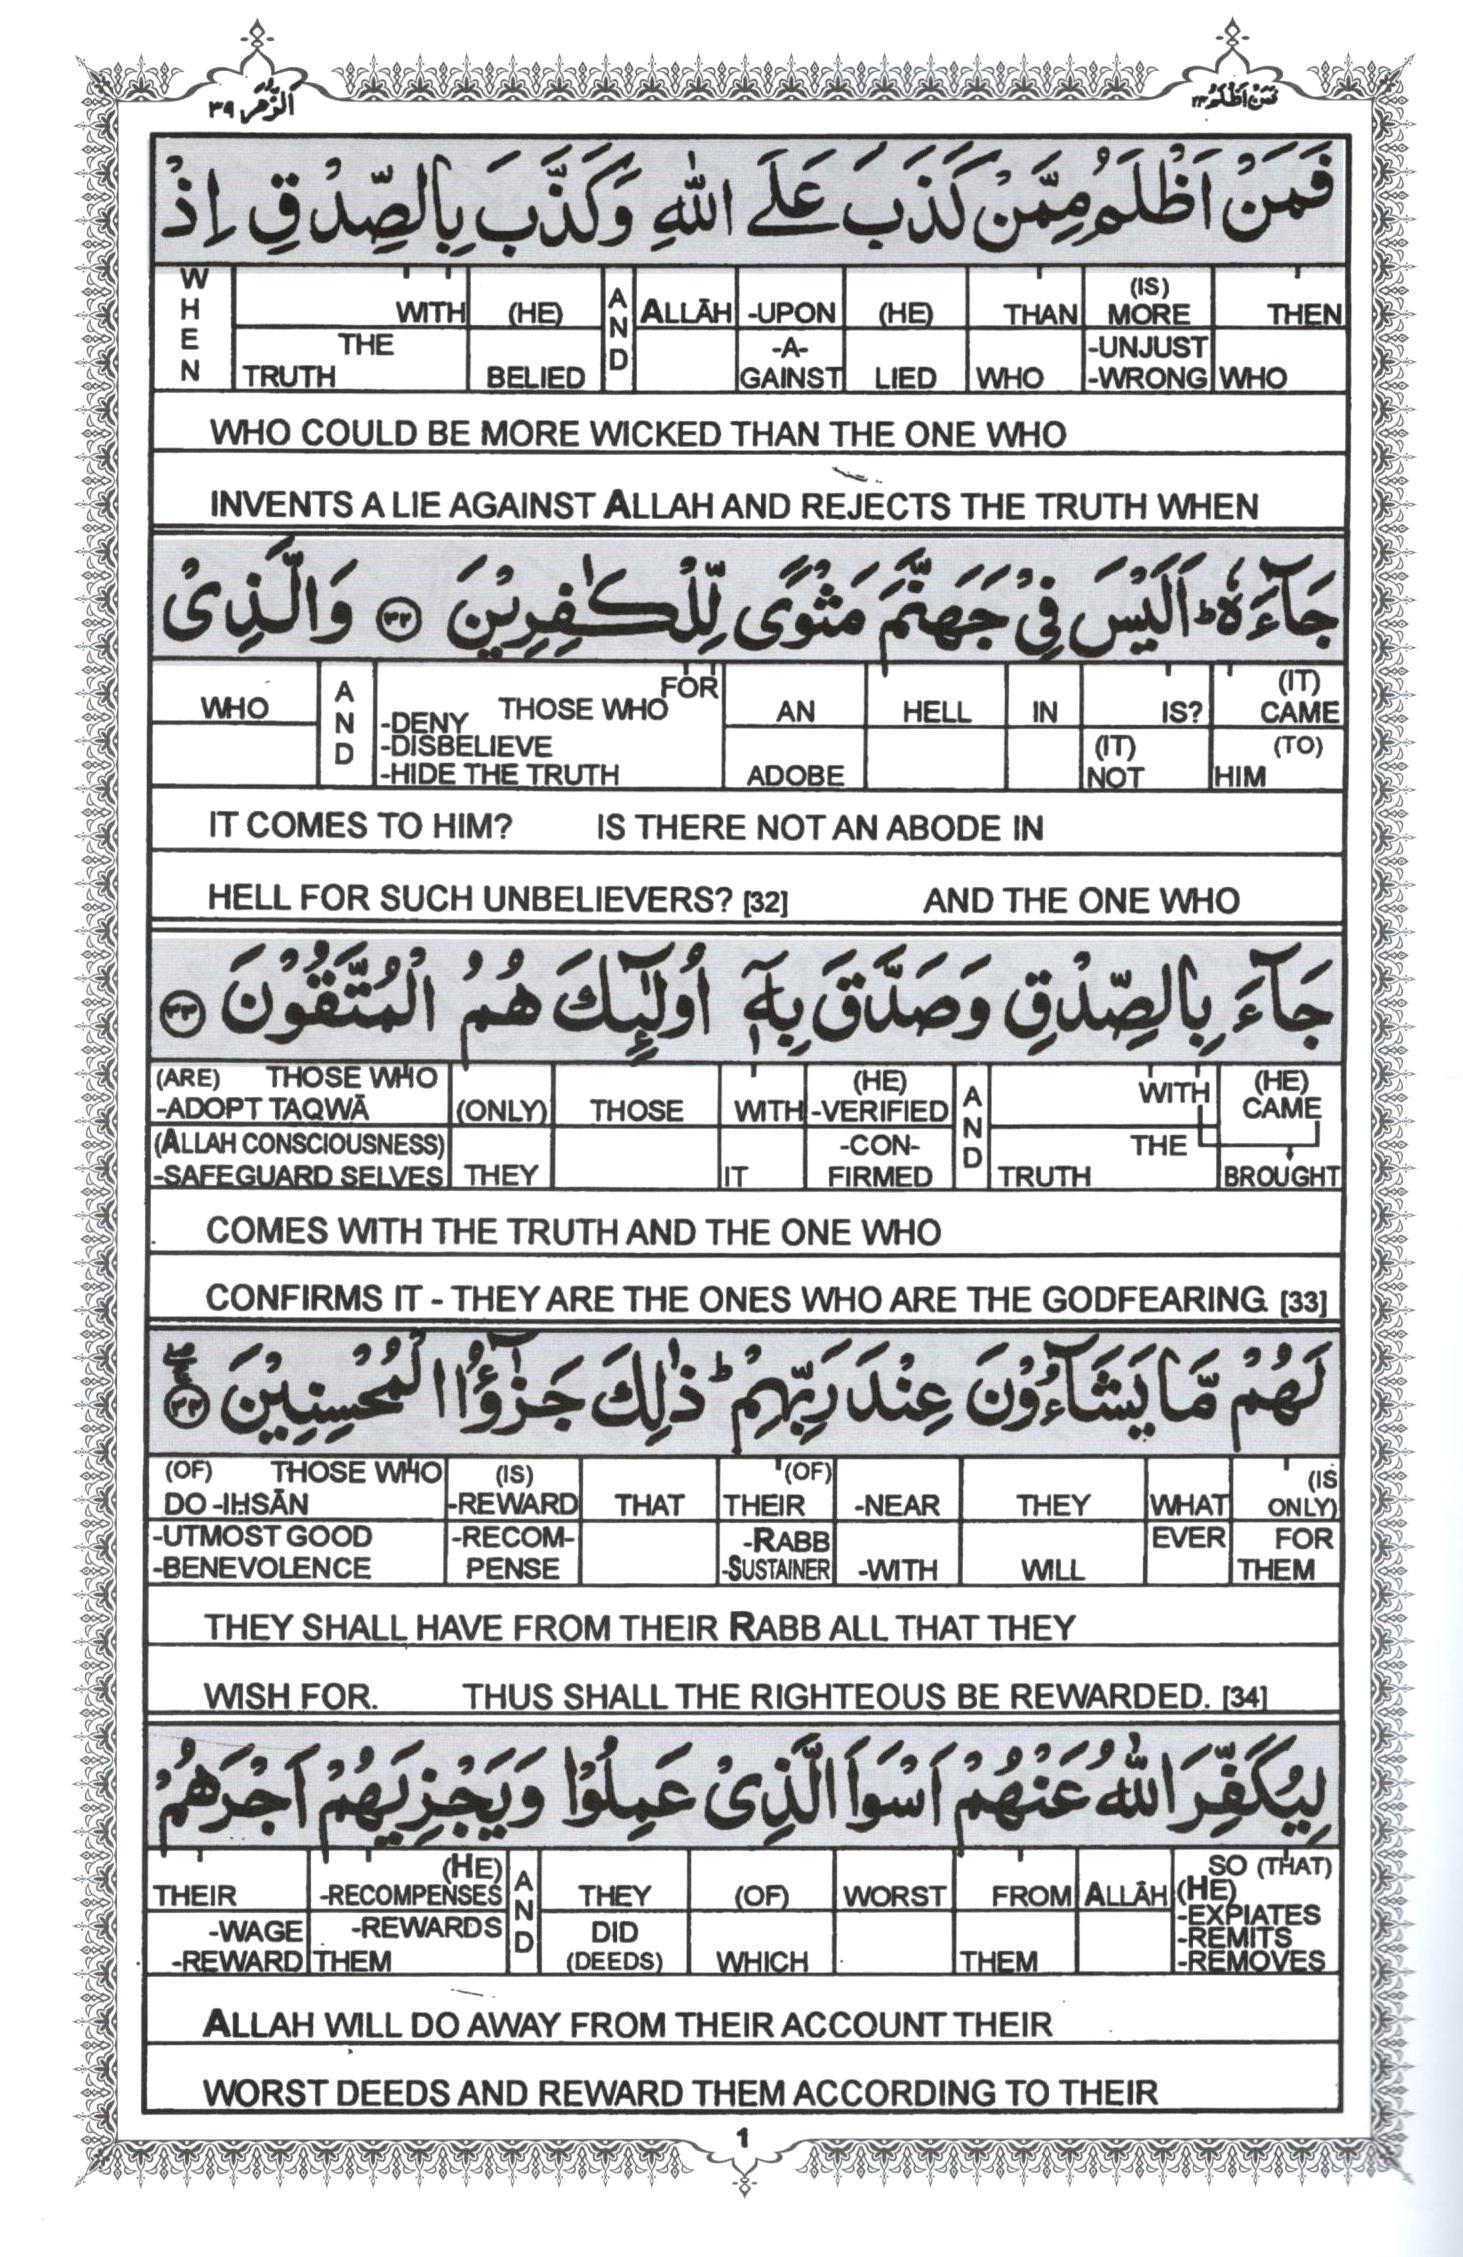 الزمر ٣٩
فمن اظلم ٢٤
فَمَنْ اَظْلَمُ مِمَّنْ كَذَبَ عَلَى اللّٰهِ وَكَذَّبَ بِالصِّدْقِ اِذْ
THEN WHO
(IS) MORE -UNJUST -WRONG
THAN WHO
(HE) LIED
-UPON -A-GAINST
ALLĀH
AND
(HE) BELIED
WITH THE TRUTH
WHEN
WHO COULD BE MORE WICKED THAN THE ONE WHO
INVENTS A LIE AGAINST ALLAH AND REJECTS THE TRUTH WHEN
جَآءَهٗ ؕ اَلَيْسَ فِيْ جَهَنَّمَ مَثْوًى لِّلْكٰفِرِيْنَ ﴿۳۲﴾ وَالَّذِيْ
(IT) CAME (TO) HIM
IS? (IT) NOT
IN
HELL
AN ADOBE
FOR THOSE WHO -DENY -DISBELIEVE -HIDE THE TRUTH
AND
WHO
IT COMES TO HIM? IS THERE NOT AN ABODE IN
HELL FOR SUCH UNBELIEVERS? [32] AND THE ONE WHO
جَآءَ بِالصِّدْقِ وَصَدَّقَ بِهٖۤ اُولٰٓئِكَ هُمُ الْمُتَّقُوْنَ ﴿۳۳﴾
(HE) CAME BROUGHT
WITH THE TRUTH
AND
(HE) -VERIFIED -CON-FIRMED
WITH IT
THOSE
(ONLY) THEY
(ARE) THOSE WHO -ADOPT TAQWĀ (ALLAH CONSCIOUSNESS) -SAFEGUARD SELVES
COMES WITH THE TRUTH AND THE ONE WHO
CONFIRMS IT - THEY ARE THE ONES WHO ARE THE GODFEARING. [33]
لَهُمْ مَّا يَشَآءُوْنَ عِنْدَ رَبِّهِمْ ؕ ذٰلِكَ جَزٰٓؤُا الْمُحْسِنِيْنَ ﴿۳۴﴾
(IS ONLY) FOR THEM
WHAT EVER
THEY WILL
-NEAR -WITH
(OF) THEIR -RABB -SUSTAINER
THAT
(IS) -REWARD -RECOM-PENSE
(OF) THOSE WHO DO -IHSĀN -UTMOST GOOD -BENEVOLENCE
THEY SHALL HAVE FROM THEIR RABB ALL THAT THEY
WISH FOR. THUS SHALL THE RIGHTEOUS BE REWARDED. [34]
لِيُكَفِّرَ اللّٰهُ عَنْهُمْ اَسْوَاَ الَّذِيْ عَمِلُوْا وَيَجْزِيَهُمْ اَجْرَهُمْ
SO (THAT) (HE) -EXPIATES -REMITS -REMOVES
ALLĀH
FROM THEM
WORST
(OF) WHICH
THEY DID (DEEDS)
AND
(HE) -RECOMPENSES -REWARDS THEM
THEIR -WAGE -REWARD
ALLAH WILL DO AWAY FROM THEIR ACCOUNT THEIR
WORST DEEDS AND REWARD THEM ACCORDING TO THEIR
1